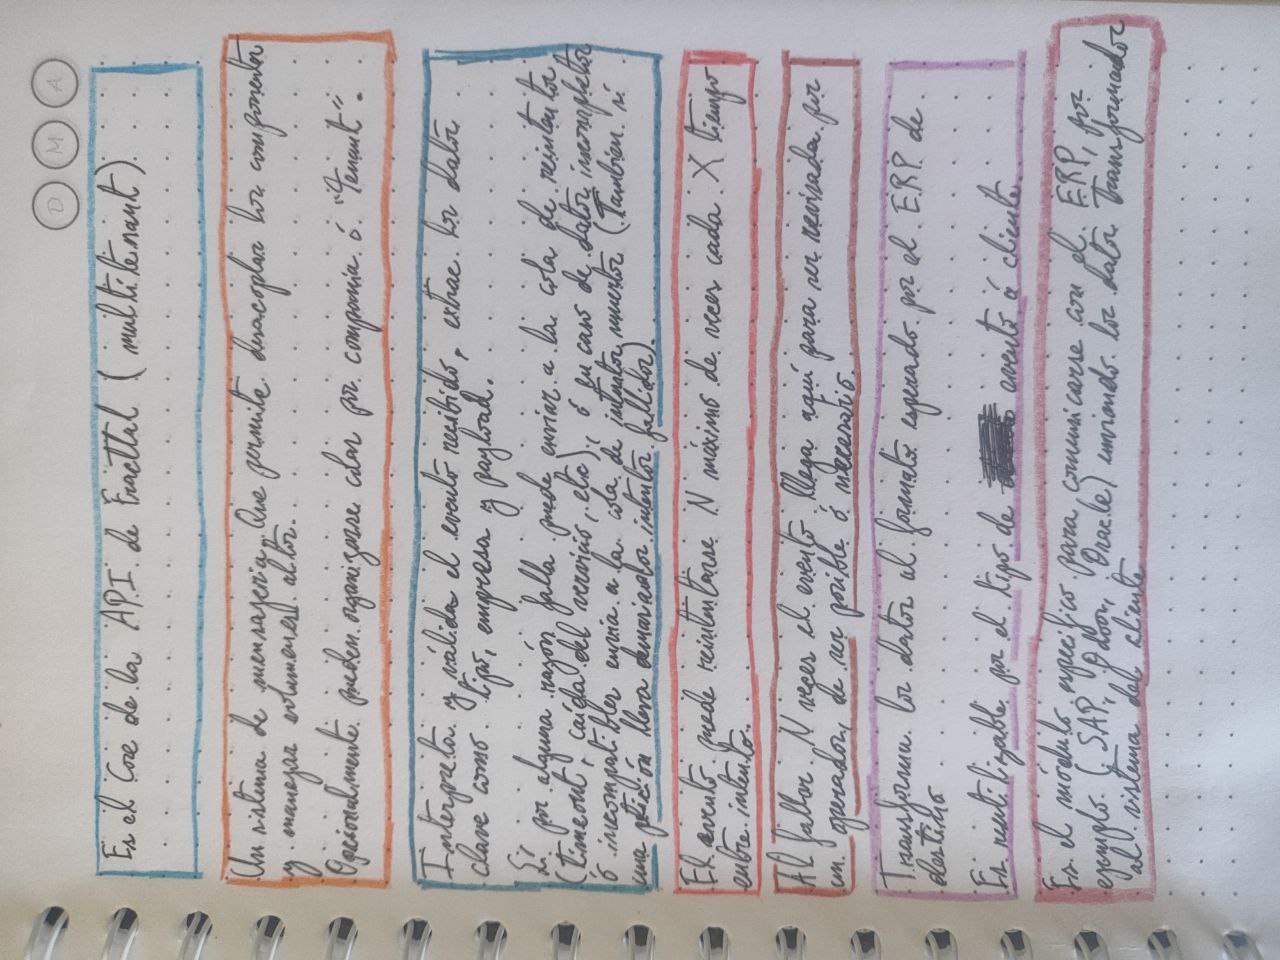 D M A
Es el Core de la API de Fracttal (multitenant)
Un sistema de mensajeria. Que permite desacoplar los componentes
y manejar volumenes altos.
Opcionalmente pueden organizarse colas por compania ó "Tenant".
Interpreta y válida el evento recibido, extrae los datos
clave como tipo, empresa y payload.
Sí por alguna razón falla puede enviar a la cola de reintentos
(timeout, caída del servicio, etc), ó en caso de datos incompletos
ó incompatibles envia a la cola de intentos muertos (Tambien si
una petición lleva demasiados intentos fallidos).
El evento puede reintentarse N máximo de veces cada X tiempo
entre intento.
Al fallar N veces el evento llega aquí para ser revisada por
un operador, de ser posible ó necesario.
Transforma los datos al formato esperado por el ERP de
destino
Es reutilizable por el tipo de evento ó cliente.
Es el módulo especifico para comunicarse con el ERP, por
ejemplo (SAP, Odoo, Oracle) enviando los datos Transformados
al sistema del cliente